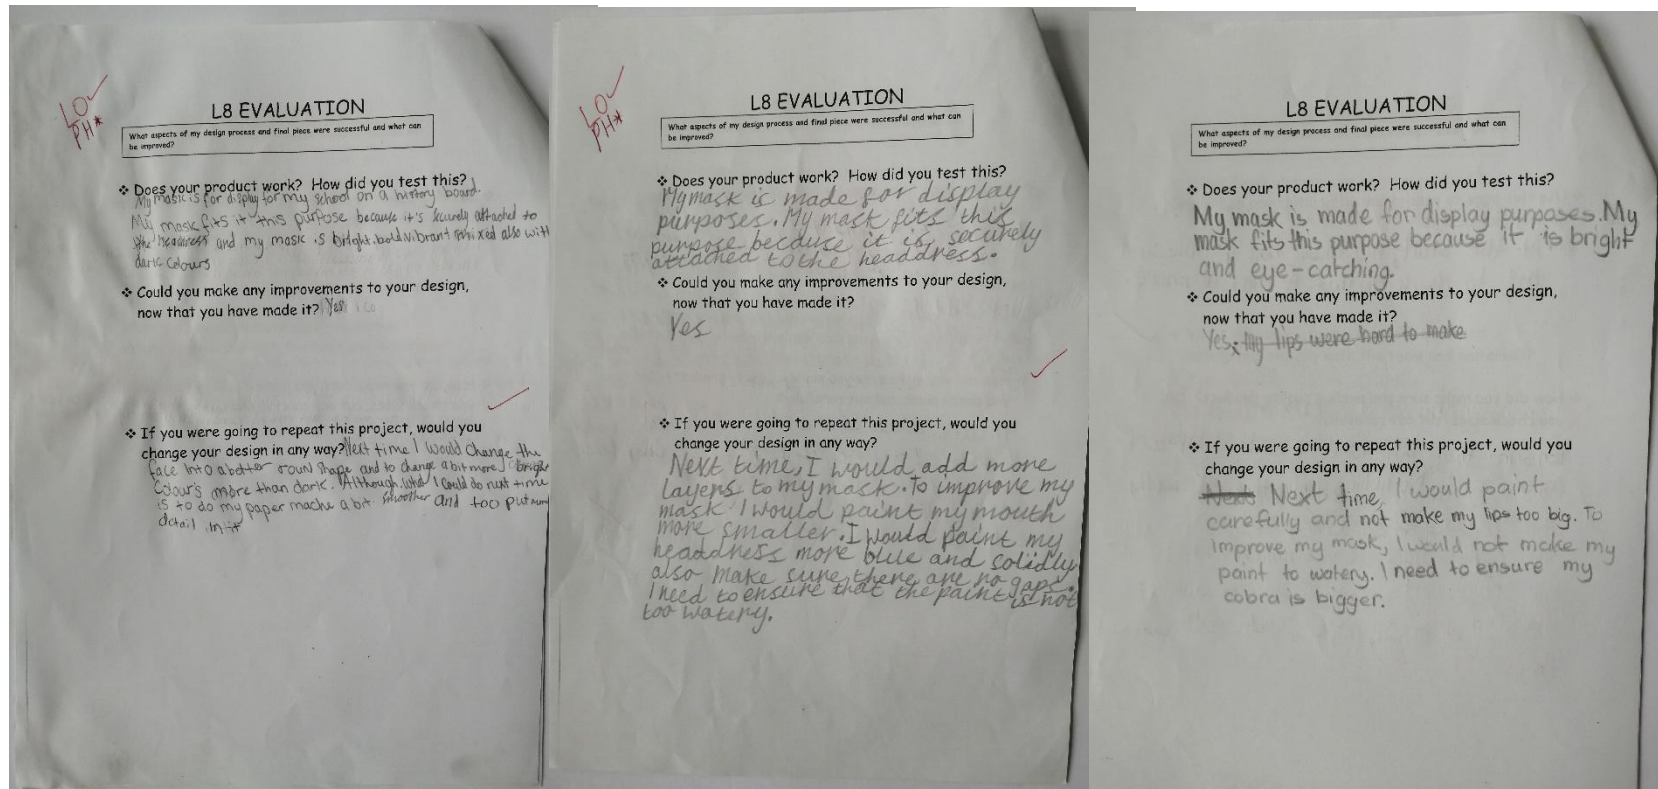 LO✓
PH*
L8 EVALUATION
What aspects of my design process and final piece were successful and what can
be improved?
❖ Does your product work? How did you test this?
My mask is for display for my school on a history board.
My mask fits it this purpose because it's scurely attached to
the headress and my mask is bright, bold vibrant mixed also with
daric colours
❖ Could you make any improvements to your design,
now that you have made it? Yes
❖ If you were going to repeat this project, would you
change your design in any way? Next time I would change the
face into a better roun shape and to change a bit more bright
colours more than dark. Although, what I could do next time
is to do my paper mache a bit smoother and too put
detail in it
LO✓
PH*
L8 EVALUATION
What aspects of my design process and final piece were successful and what can
be improved?
❖ Does your product work? How did you test this?
My mask is made for display
purposes. My mask fits this
purpose because it is securely
attached to the headdress.
❖ Could you make any improvements to your design,
now that you have made it?
Yes
❖ If you were going to repeat this project, would you
change your design in any way?
Next time, I would add more
layers to my mask. To improve my
mask I would paint my mouth
more smaller. I would paint my
headdress more blue and solidly
also make sure there are no gaps.
I need to ensure that the paint is not
too watery.
L8 EVALUATION
What aspects of my design process and final piece were successful and what can
be improved?
❖ Does your product work? How did you test this?
My mask is made for display purposes. My
mask fits this purpose because it is bright
and eye-catching.
❖ Could you make any improvements to your design,
now that you have made it?
Yes, my lips were hard to make
❖ If you were going to repeat this project, would you
change your design in any way?
Next Next time, I would paint
carefully and not make my lips too big. To
improve my mask, I would not make my
paint to watery. I need to ensure my
cobra is bigger.